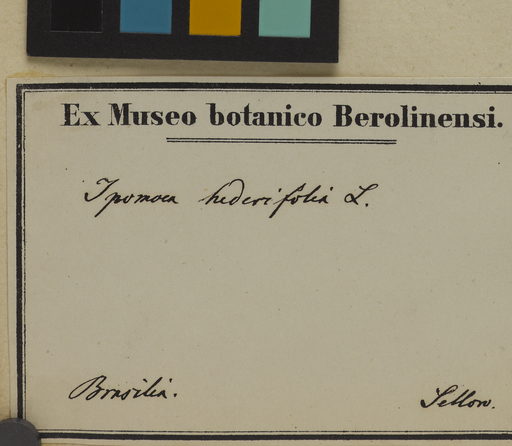 Ex Museo botanico Berolinensi.
Ipomoea hederifolia L.
Brasilia.
Sellow.